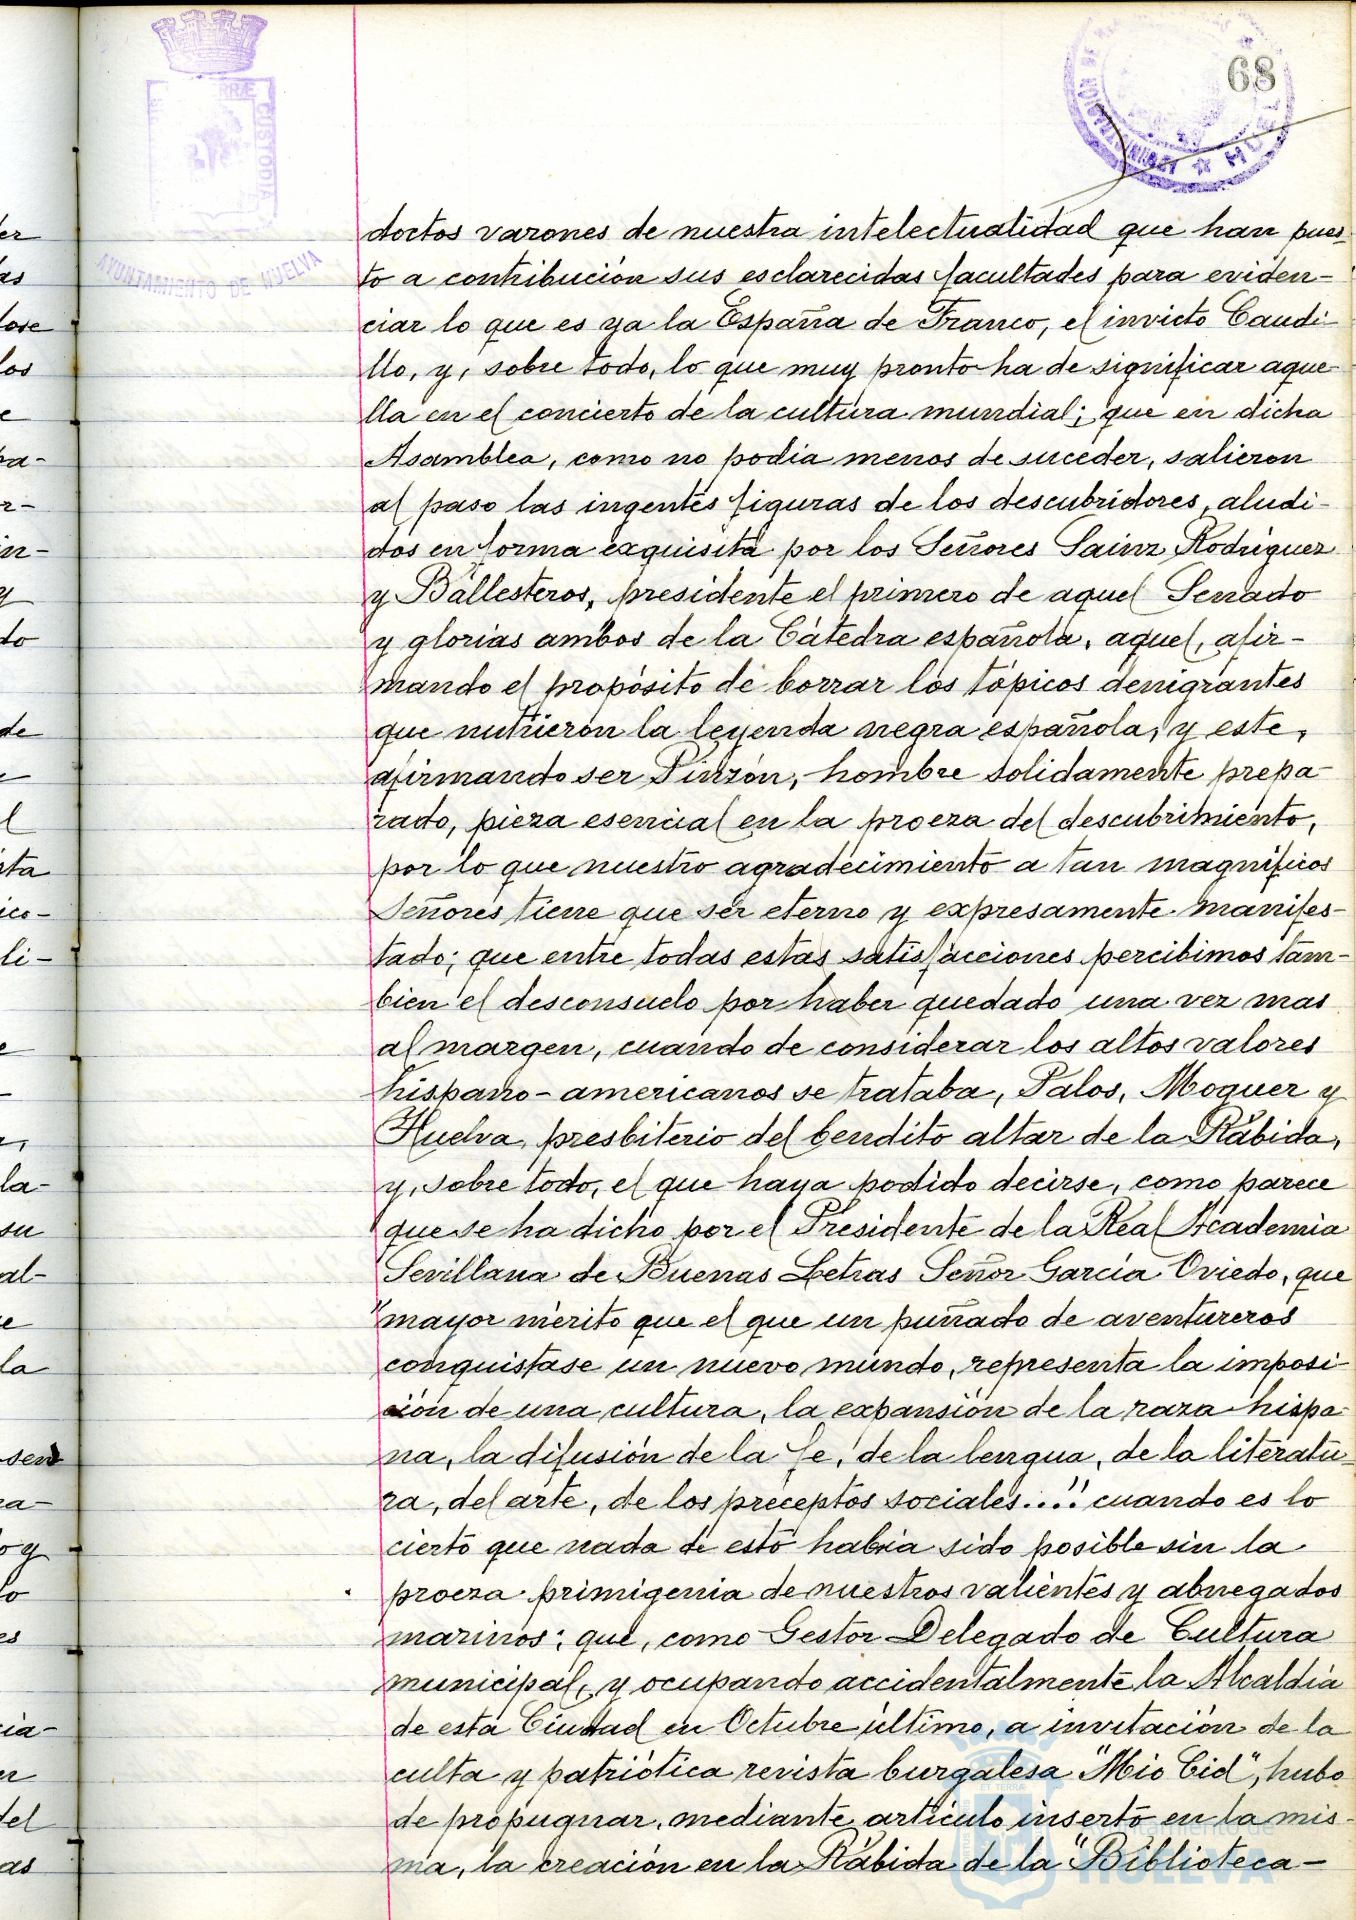 68
AYUNTAMIENTO DE HUELVA
CUSTODIA
doctos varones de nuestra intelectualidad que han pues-
to a contribución sus esclarecidas facultades para eviden-
ciar lo que es ya la España de Franco, el invicto Caudi-
llo, y, sobre todo, lo que muy pronto ha de significar aque-
lla en el concierto de la cultura mundial; que en dicha
Asamblea, como no podia menos de suceder, salieron
al paso las ingentes figuras de los descubridores, aludi-
dos en forma exquisita por los Señores Sainz Rodriguez
y Ballesteros, presidente el primero de aquel Senado
y glorias ambos de la Cátedra española, aquel, afir-
mando el propósito de borrar los tópicos denigrantes
que nutrieron la leyenda negra española, y este,
afirmando ser Pinzón, hombre solidamente prepa-
rado, pieza esencial en la proeza del descubrimiento,
por lo que nuestro agradecimiento a tan magnificos
Señores tiene que ser eterno y expresamente manifes-
tado; que entre todas estas satisfacciones percibimos tam-
bien el desconsuelo por haber quedado una vez mas
al margen, cuando de considerar los altos valores
hispano-americanos se trataba, Palos, Moguer y
Huelva, presbiterio del bendito altar de la Rábida,
y, sobre todo, el que haya podido decirse, como parece
que se ha dicho por el Presidente de la Real Academia
Sevillana de Buenas Letras Señor García Oviedo, que
"mayor mérito que el que un puñado de aventureros
conquistase un nuevo mundo, representa la imposi-
ción de una cultura, la expansión de la raza hispa-
na, la difusión de la fe, de la lengua, de la literatu-
ra, del arte, de los preceptos sociales..." cuando es lo
cierto que nada de esto habria sido posible sin la
proeza primigenia de nuestros valientes y abnegados
marinos; que, como Gestor Delegado de Cultura
municipal, y ocupando accidentalmente la Alcaldía
de esta Ciudad en Octubre último, a invitación de la
culta y patriótica revista burgalesa "Mio Cid", hubo
de propugnar, mediante articulo inserto en la mis-
ma, la creación en la Rábida de la "Biblioteca-
Ayuntamiento de
HUELVA